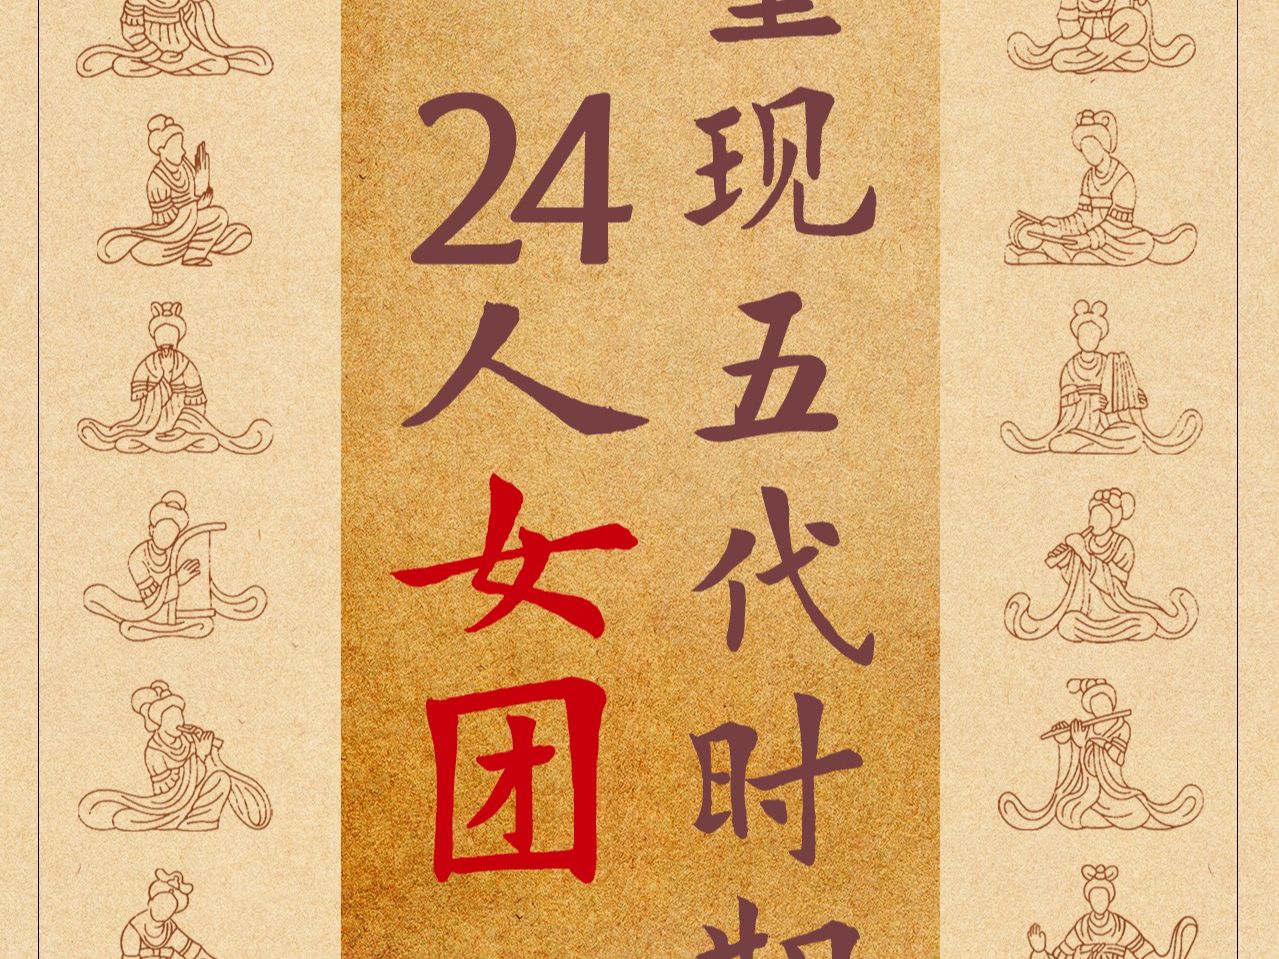 现五代时期
24人女团